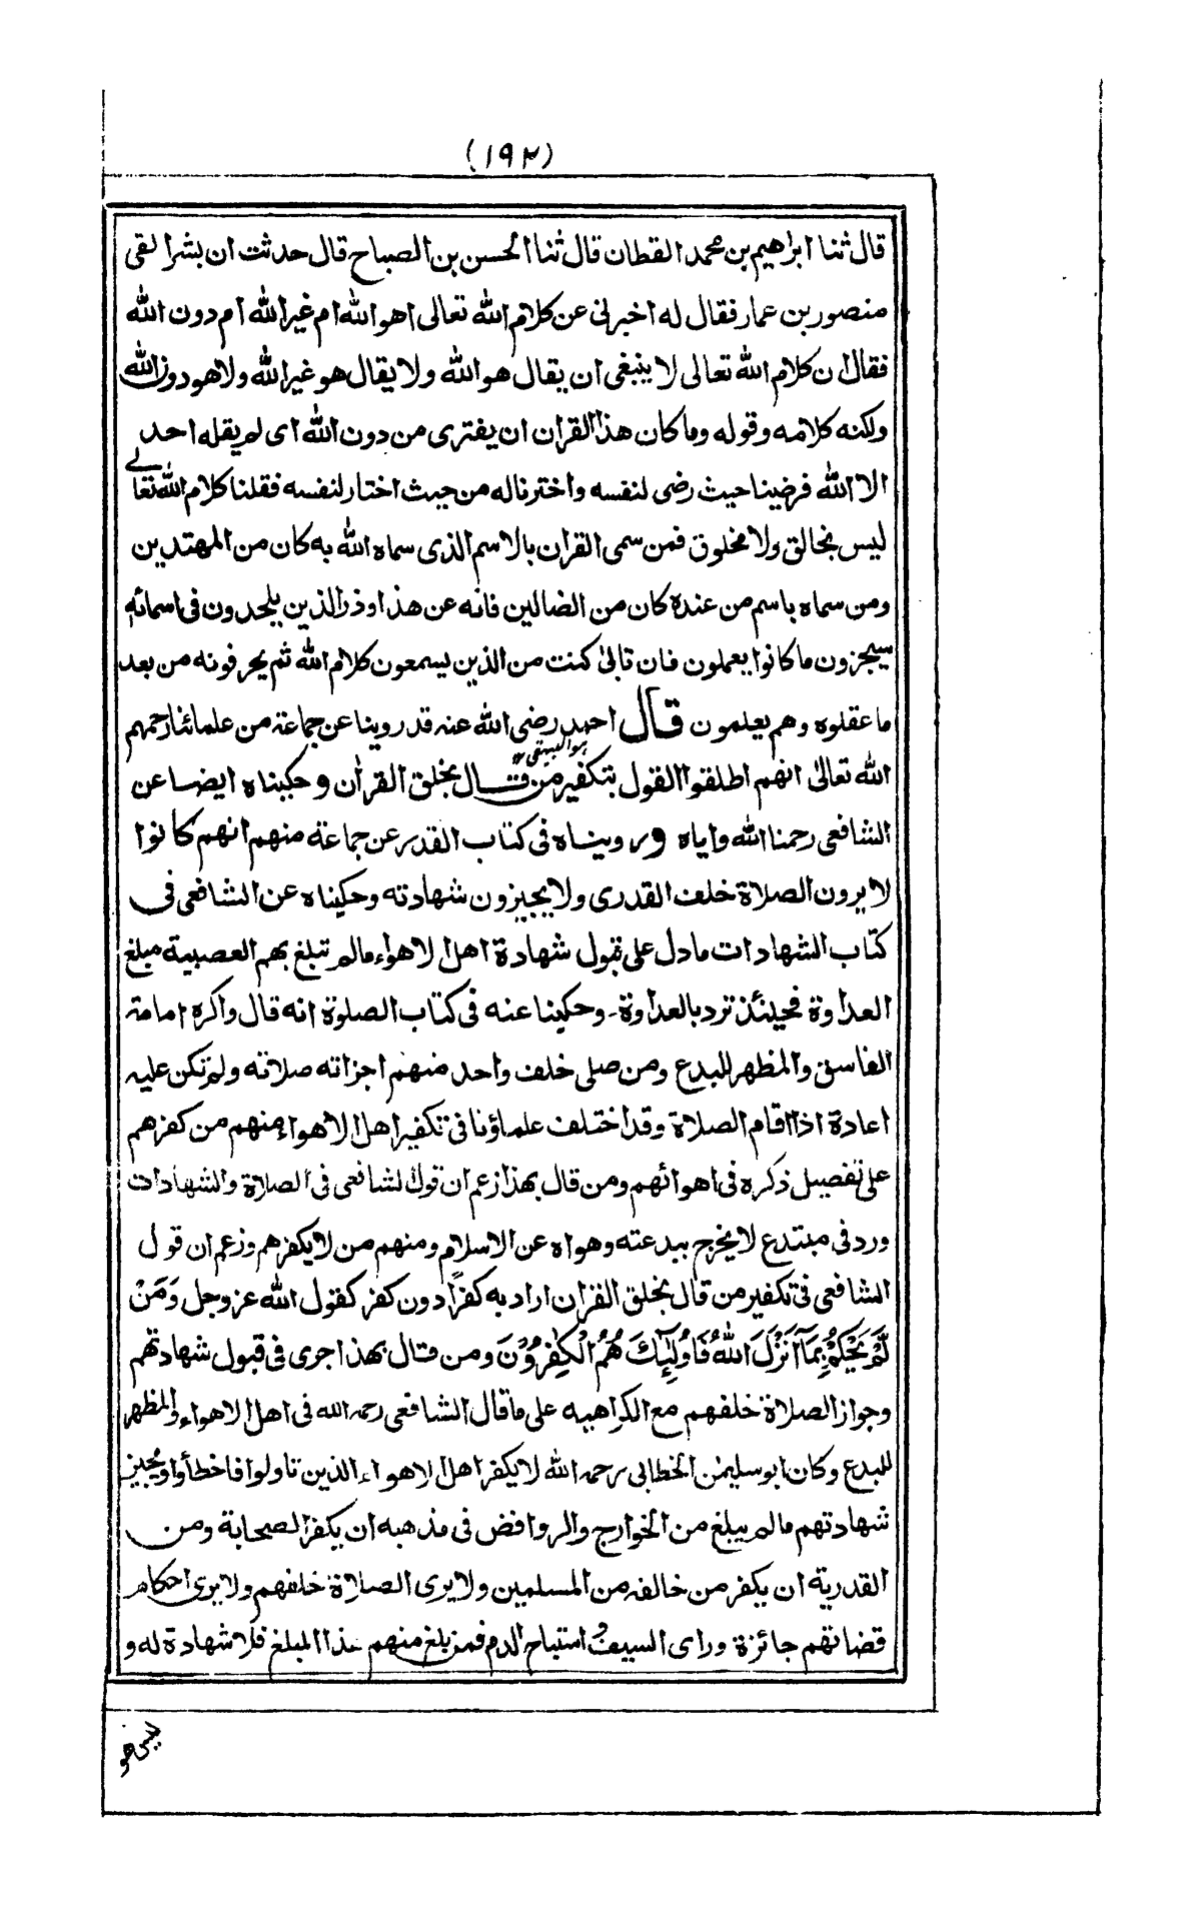 (۱۹۲)
قال ثنا ابراهيم بن محمد القطان قال ثنا الحسن بن الصباح قال حدثت ان بشرا لقى
منصور بن عمار فقال له اخبرنى عن كلام الله تعالى اهو الله ام غير الله ام دون الله
فقال ان كلام الله تعالى لا ينبغى ان يقال هو الله ولا يقال هو غير الله ولا هو دون الله
ولكنه كلامه وقوله وما كان هذا القران ان يفترى من دون الله اى لم يقله احد
الا الله فرضينا حيث رضى لنفسه واخترناله من حيث اختار لنفسه فقلنا كلام الله تعالى
ليس بخالق ولا مخلوق فمن سمى القران بالاسم الذى سماه الله به كان من المهتدين
ومن سماه باسم من عنده كان من الضالين فانه عن هذا وذر الذين يلحدون فى اسمائه
سيجزون ما كانوا يعملون فان تابى كنت من الذين يسمعون كلام الله ثم يحرفونه من بعد
ما عقلوه وهم يعلمون قال احمد رضى الله عنه قد روينا عن جماعة من علمائنا رحمهم
هو البيهقى ۱۲
الله تعالى انهم اطلقوا القول بتكفير من قال بخلق القران وحكيناه ايضا عن
الشافعى رحمنا الله واياه ورويناه فى كتاب القدر عن جماعة منهم انهم كانوا
لا يرون الصلاة خلف القدرى ولا يجيزون شهادته وحكيناه عن الشافعى فى
كتاب الشهادات ما دل على قبول شهادة اهل الاهواء مالم تبلغ بهم العصبية مبلغ
العداوة فحينئذ ترد بالعداوة۔ وحكينا عنه فى كتاب الصلوة انه قال واكره امامة
الفاسق والمظهر للبدع ومن صلى خلف واحد منهم اجزاته صلاته ولم تكن عليه
اعادة اذا اقام الصلاة وقد اختلف علماؤنا فى تكفير اهل الاهواء منهم من كفرهم
على تفصيل ذكره فى اهوائهم ومن قال بهذا زعم ان قول الشافعى فى الصلاة والشهادات
ورد فى مبتدع لا يخرج ببدعته وهواه عن الاسلام ومنهم من لا يكفرهم وزعم ان قول
الشافعى فى تكفير من قال بخلق القران اراد به كفرًا دون كفر كقول الله عز وجل وَمَنْ
لَّمْ يَحْكُمْ بِمَآ اَنْزَلَ اللهُ فَاُولٰٓئِكَ هُمُ الْكٰفِرُوْنَ ومن قال بهذا اجرى فى قبول شهادتهم
وجواز الصلاة خلفهم مع الكراهيه على ما قال الشافعى رحمه الله فى اهل الاهواء والمظهر
للبدع وكان ابو سليمٰن الخطابى رحمه الله لا يكفر اهل الاهواء الذين تاولوا فاخطأوا ويجيز
شهادتهم مالم يبلغ من الخوارج والروافض فى مذهبه ان يكفر الصحابة ومن
القدرية ان يكفر من خالفه من المسلمين ولا يرى الصلاة خلفهم ولا يرى احكام
قضاتهم جائزة وراى السيف و استباح الدم فمن بلغ منهم هذا المبلغ فلا شهادة له و